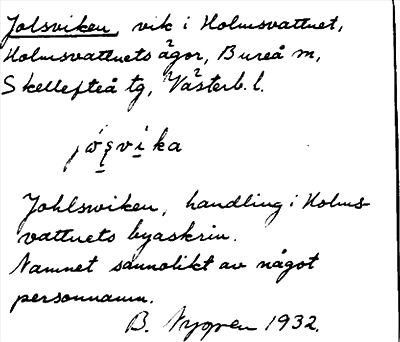 Jolsviken vik i Holmsvattnet,
Holmsvattnets ägor, Bureå m,
Skellefteå tg, Västerb. l.
Johlswiken, handling i Holms-
vattnets byaskrin.
Namnet sannolikt av något
personnamn.
B. Nygren 1932.